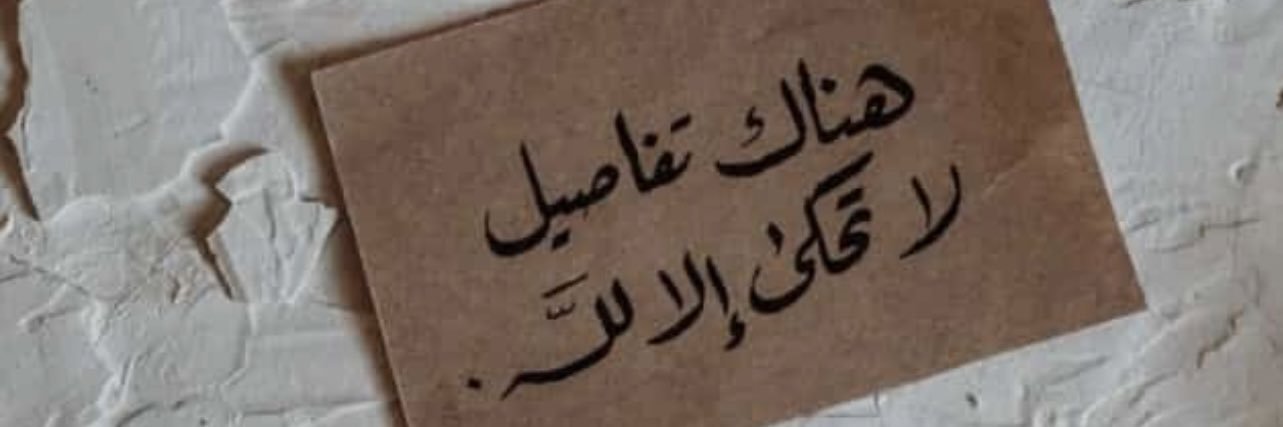 هناك تفاصيل
لا تحكىٰ إلا للَّه.